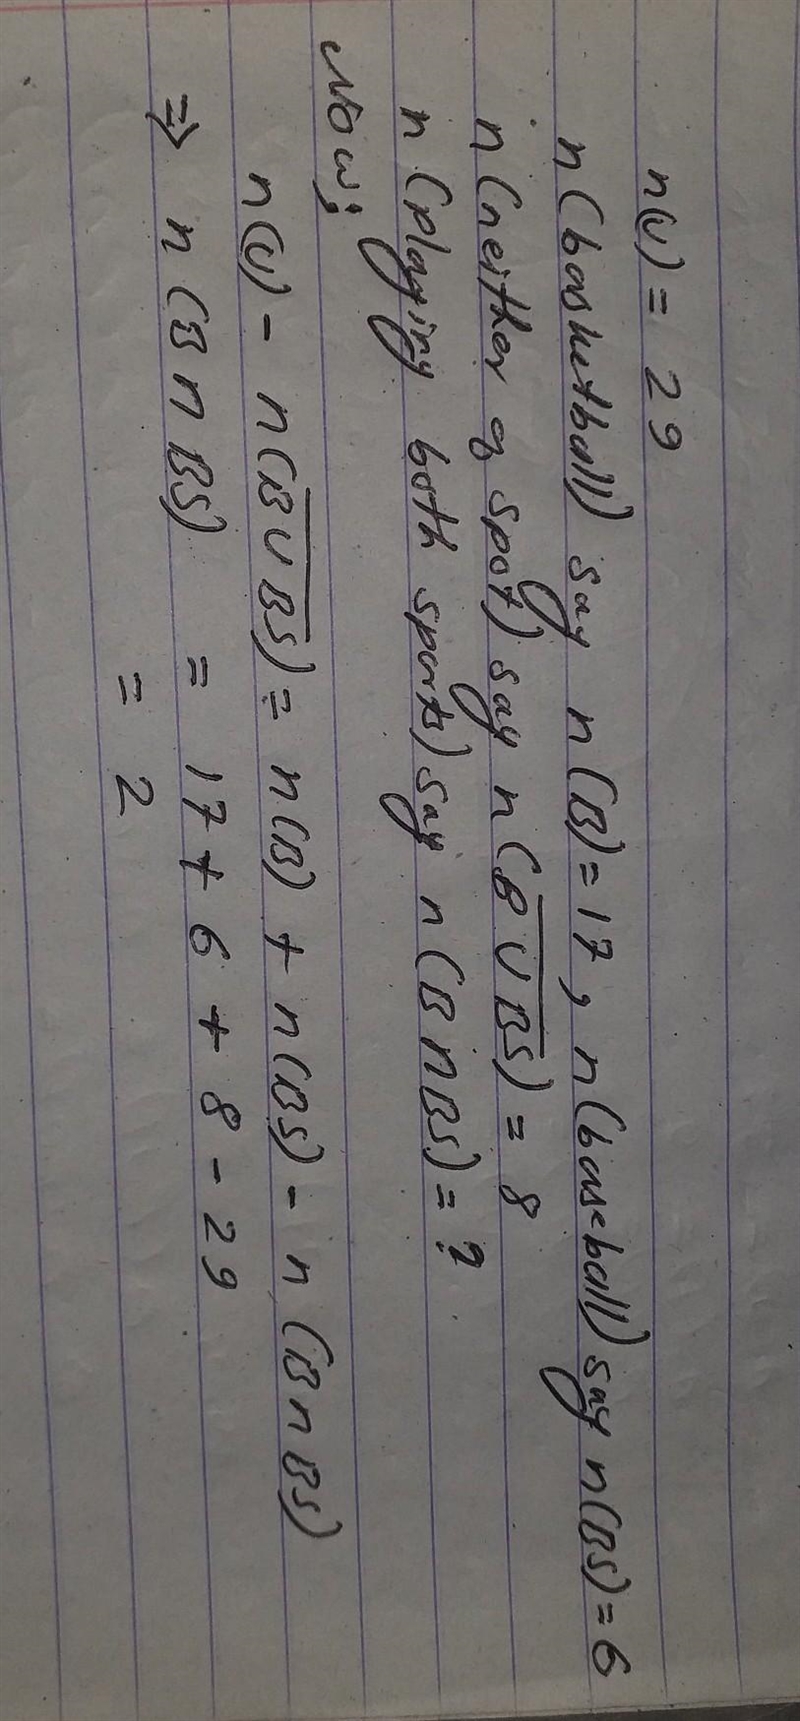 n(U) = 29
n(basketball) say n(B)=17, n(baseball) say n(BS)=6
n(neither of spot) say n(B̅ ̅U̅ ̅B̅S̅) = 8
n(playing both sports) say n(B n BS) = ?
Now;
n(U) - n(B̅ ̅U̅ ̅B̅S̅) = n(B) + n(BS) - n(B n BS)
⇒ n(B n BS) = 17 + 6 + 8 - 29
= 2